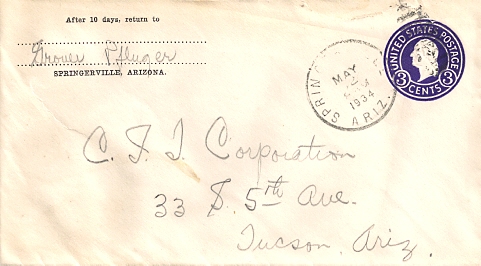 After 10 days, return to
Grover Pfluger
SPRINGERVILLE, ARIZONA.
MAY
12
1934
ARIZ.
UNITED STATES POSTAGE
3 3
CENTS
C. I. I. Corporation
33 S. 5th Ave.
Tucson, Ariz.